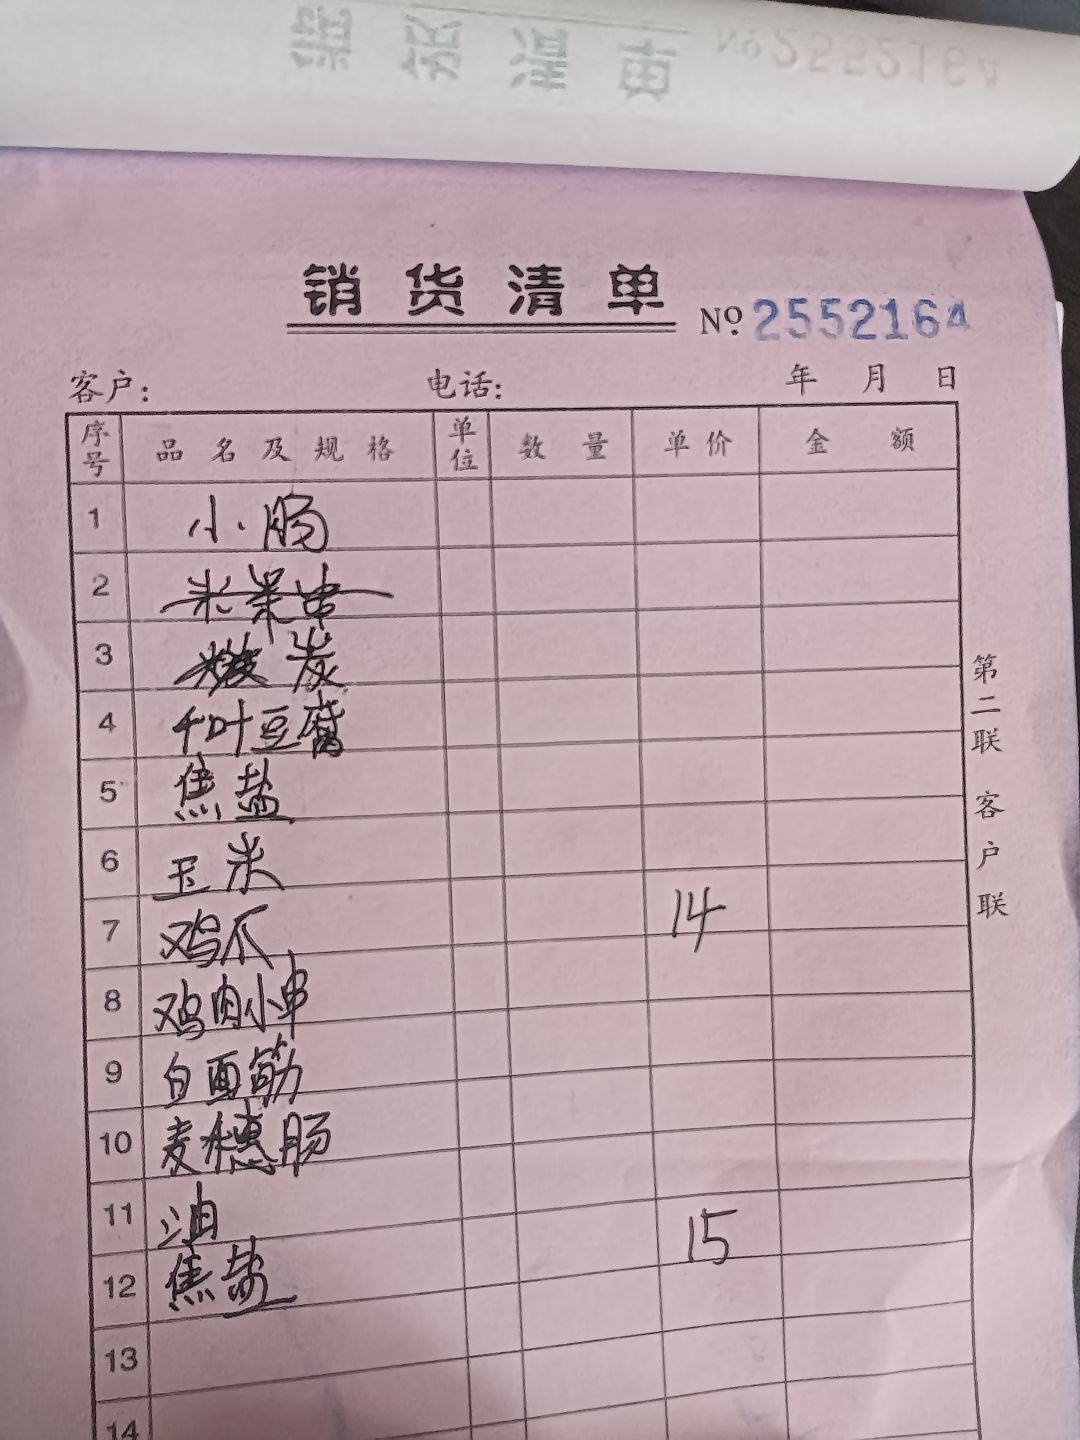 销货清单
No. 2552164
客户： 电话： 年 月 日
序号 品名及规格 单位 数量 单价 金额
1 小肠
2 米果串
3 炭
4 千叶豆腐
5 焦盐
6 玉米
7 鸡爪 14
8 鸡肉小串
9 白面筋
10 麦穗肠
11 油 15
12 焦盐
13
14
第二联 客户联